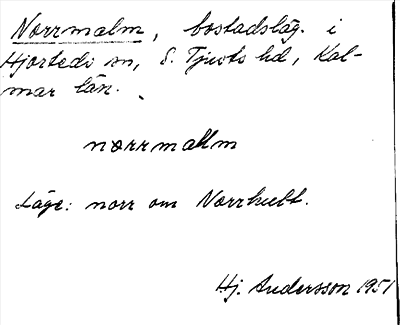 Norrmalm, bostadsläg. i
Hjorteds sn, S. Tjusts hd, Kal-
mar län.
norrmalm
Läge: norr om Norrhult.
Hj. Andersson 1951